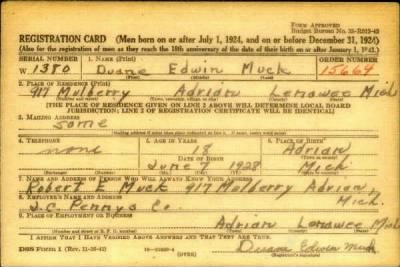 FORM APPROVED
Budget Bureau No. 33-R023-42
REGISTRATION CARD—(Men born on or after July 1, 1924, and on or before December 31, 1924)
(Also for the registration of men as they reach the 18th anniversary of the date of their birth on or after January 1, 1943.)
SERIAL NUMBER 1. NAME (Print) ORDER NUMBER
W 1380 Duane Edwin Muck 15669
(First) (Middle) (Last)
2. PLACE OF RESIDENCE (Print)
917 Mulberry Adrian Lenawee Mich
[THE PLACE OF RESIDENCE GIVEN ON LINE 2 ABOVE WILL DETERMINE LOCAL BOARD
JURISDICTION; LINE 2 OF REGISTRATION CERTIFICATE WILL BE IDENTICAL]
3. MAILING ADDRESS
same
4. TELEPHONE 5. AGE IN YEARS 6. PLACE OF BIRTH
none 18 Adrian
DATE OF BIRTH
June 7 1928 Mich.
7. NAME AND ADDRESS OF PERSON WHO WILL ALWAYS KNOW YOUR ADDRESS
Robert E Muck 917 Mulberry Adrian,
8. EMPLOYER'S NAME AND ADDRESS Mich.
J.C. Pennys Co.
9. PLACE OF EMPLOYMENT OR BUSINESS
Adrian Lenawee Mich
I AFFIRM THAT I HAVE VERIFIED ABOVE ANSWERS AND THAT THEY ARE TRUE.
DSS Form 1 (Rev. 11-16-42) (OVER) Duane Edwin Muck